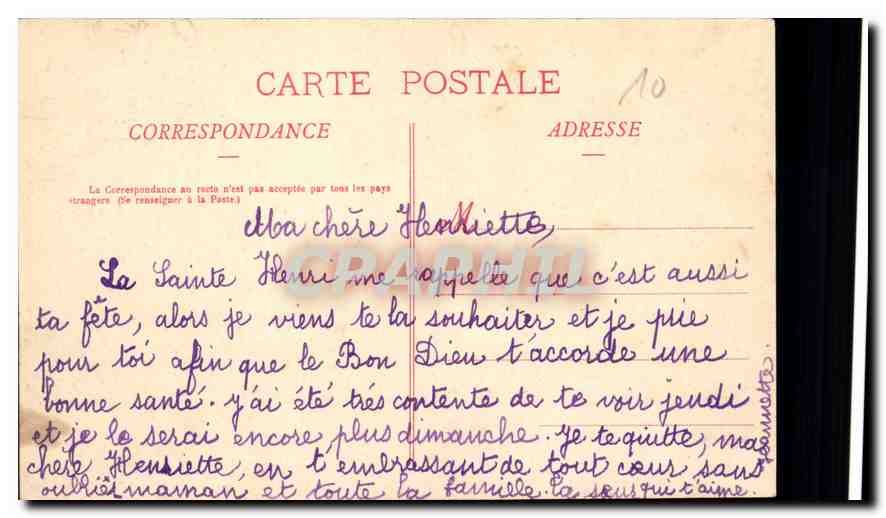 10
CARTE POSTALE
CORRESPONDANCE
ADRESSE
La Correspondance au recto n'est pas acceptée par tous les pays
étrangers (Se renseigner à la Poste.)
Ma chère Henriette,
CPAPHIL
La Sainte Henri me rappelle que c'est aussi
ta fête, alors je viens te la souhaiter et je prie
pour toi afin que le Bon Dieu t'accorde une
bonne santé. J'ai été très contente de te voir jeudi
et je le serai encore plus dimanche. Je te quitte, ma
chère Henriette, en t'embrassant de tout cœur sans
oublier maman et toute la famille. La sœur qui t'aime.
Jeannette.